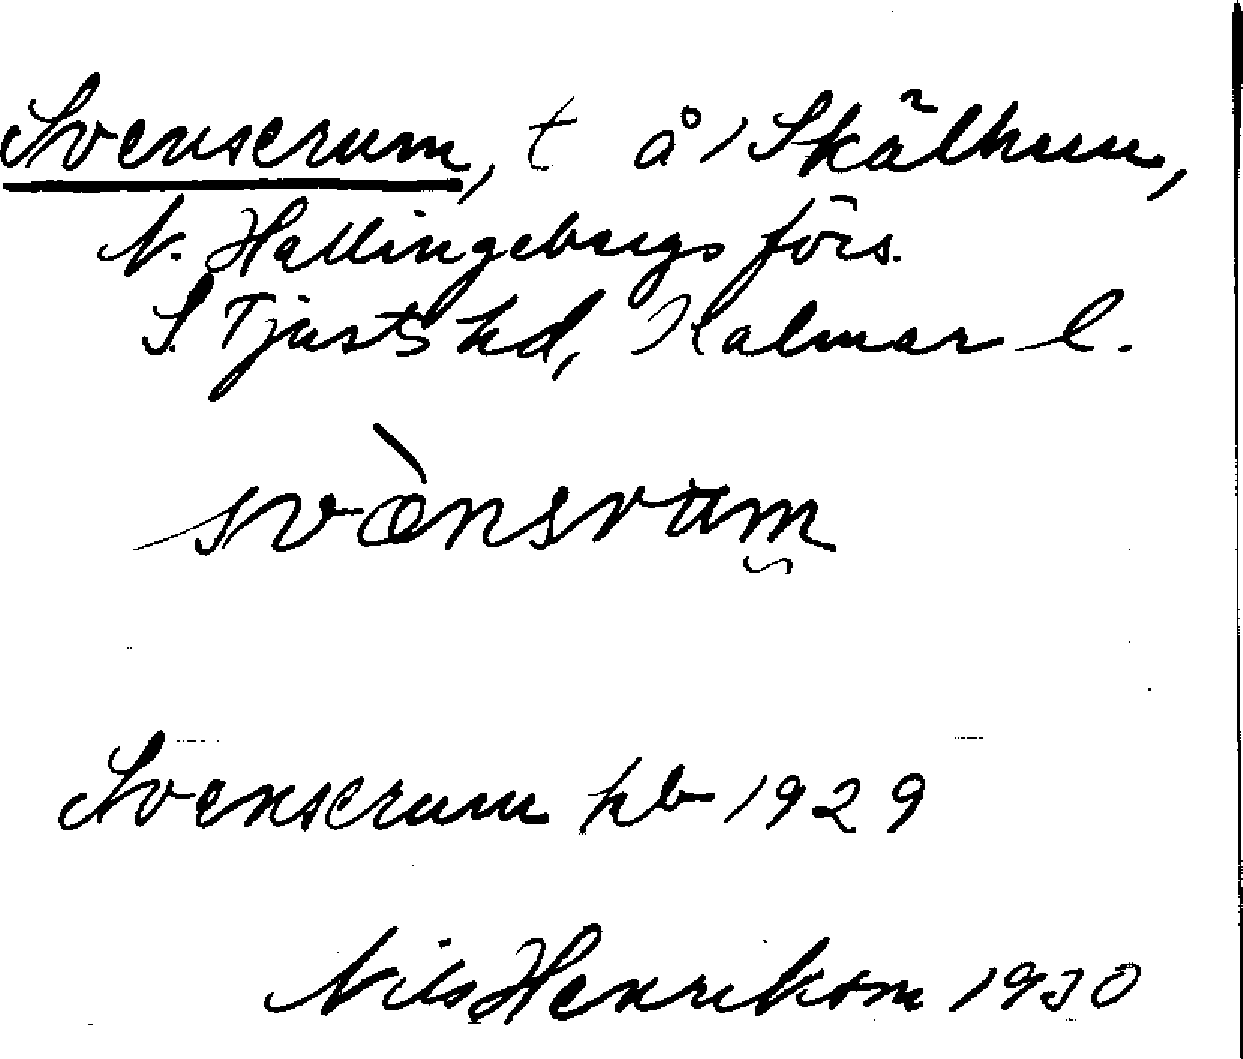 Svenserum, t å/ Skälhem,
N. Hallingebergs förs.
S. Tjusts hd, Kalmar l.
svæ̀nsrum̯
Svenserum kb 1929
Nils Henrikson 1930